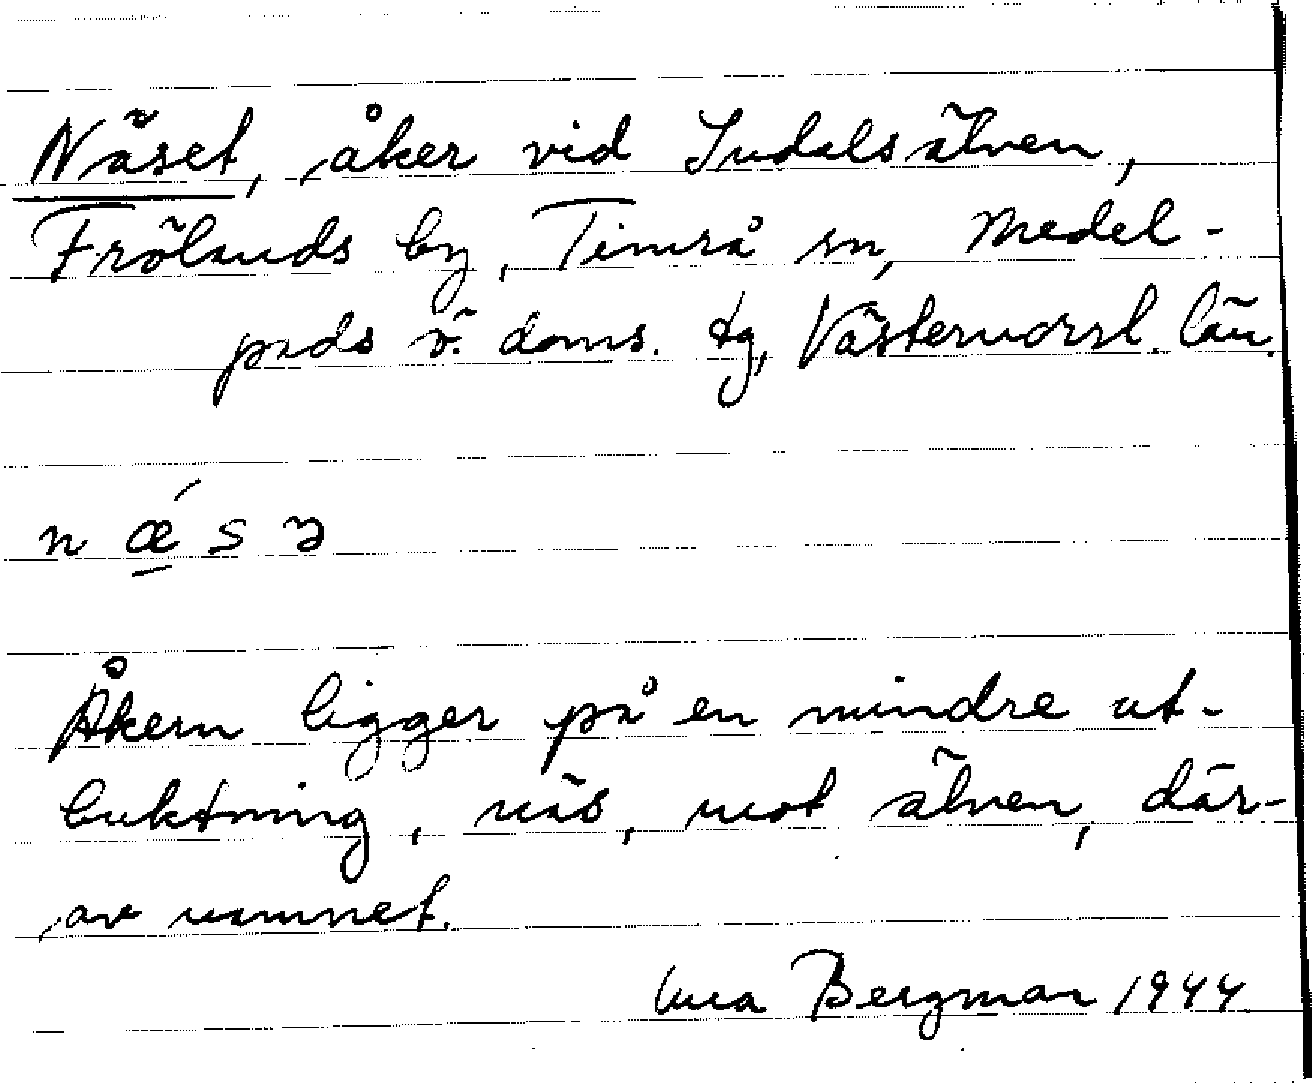 Näset, åker vid Indalsälven,
Frölands by, Timrå sn, Medel-
pads ö. doms. tg, Västernorrl. län.
n ǽ s ə
Åkern ligger på en mindre ut-
buktning, näs, mot älven, där-
av namnet.
Bergman 1944